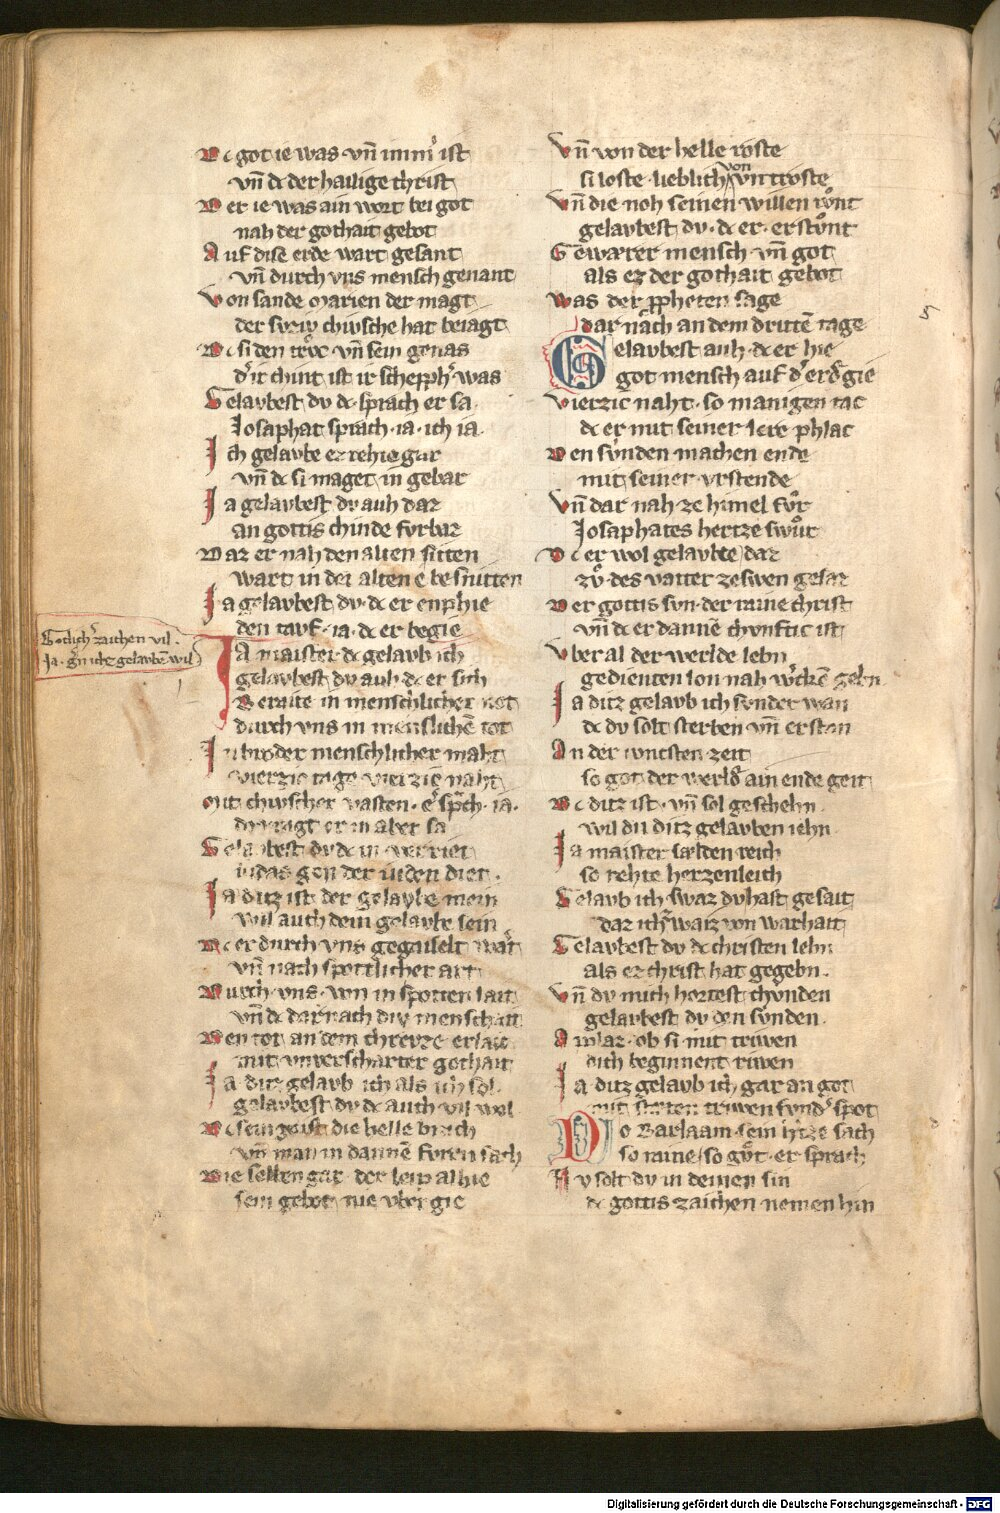 Dc got ie was vn̄ imm̾ ist
vn̄ dc der hailige christ
Der ie was ain wort bei got
nah der gothait gebot
Auf dise erde wart gesant
vn̄ durch vns mensch genant
Von sande Marien der magt
der sveiv chivsche hat beiagt
Dc si den vn̄ sein genas
d̾ ir chint ist ir scheppfh̾ was
Gelavbest dv dc sprach er sa
Josaphat sprach ia ich ia
Ich gelavbe ez rehte gar
vn̄ dc si maget in gebar
Ja gelavbest dv auh daz
an gottis chinde fvrbaz
Daz er nah den alten sitten
wart in der alten e besnitten
Ja gelavbest dv dc er enphie
den tavf ia dc er begie
Gotlich̾ zaichen vil
Ja maister dc gelavb ich
gelavbest dv auh dc er sich
Beraite in menschlicher not
durch vns in menslichē tot
In broder menschlicher maht
vierzic tage vierzic naht
Mit chivscher vasten er sprach ia
do vragt er in aber sa
Gelavbest dv dc in verriet
iudas gen der iuden diet
Ja ditz ist der gelavbe mein
wil auch dein gelavbe sein
Dc er durch vns gegaiselt wart
vn̄ nach spotlicher art
Durch vns von in spotten lait
vn̄ dc darnach div menschait
Den tot an dem chrevze erlait
mit vnverscharter gothait
Ja ditz gelavb ich als ich sol
gelavbest dv dc auch vil wol
Dc sein geist die helle brach
vn̄ man in dannē fvren sach
Die sellen gar der leip alhie
sein gebot nie vbergie
Vn̄ von der helle roste
si loste lieblich von vntroste
Vn̄ die noh seinen willen
gelavbest dv dc er erstvnt
Gewærer mensch vn̄ got
als ez der gothait gebot
Was der ppheten sage
dar nach an dem drittē tage
Gelavbest auh dc er hie
got mensch auf d̾ erd̾ gie
Vierzic naht so manigen tac
dc er mit seiner lere phlac
Den svnden machen ende
mit seiner vrstende
Vn̄ dar nah ze himel fvr
Josaphates hertze swvr
Dc er wol gelavbte daz
zv des vatter zeswen gesaz
Der gottis svn der raine christ
vn̄ dc er dannē chvnftic ist
Vberal der werlde lebn
gedienten lon nah geben
Ja ditz gelavb ich svnder wan
dc dv solt sterben vn̄ erstan
An der ivncsten zeit
so got der werld̾ ain ende geit
Dc ditz ist vn̄ sol geschehn
wil dv ditz gelavben iehn
Ja maister sælden reich
so rehte herzenleich
Gelavb ich swaz dv hast gesait
daz ich waiz von warhait
Gelavbest dv dc christen lebn
als ez christ hat gegebn
Vn̄ dv mich hortest chvnden
gelavbest dv den svnden
Antlaz ob si mit triwen
dich beginnent riwen
Ja ditz gelavb ich gar an got
mit steten triwen svnd̾ spot
Do Barlaam sein h̾tze sach
so raine so gvt er sprach
Nv solt dv in deinen sin
dc gottis zaichen nemen hin
Digitalisierung gefördert durch die Deutsche Forschungsgemeinschaft - DFG